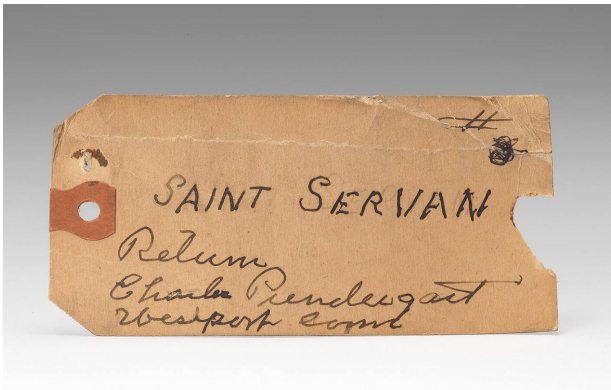 SAINT SERVAN
Return
Charles Prendergast
Westport Conn